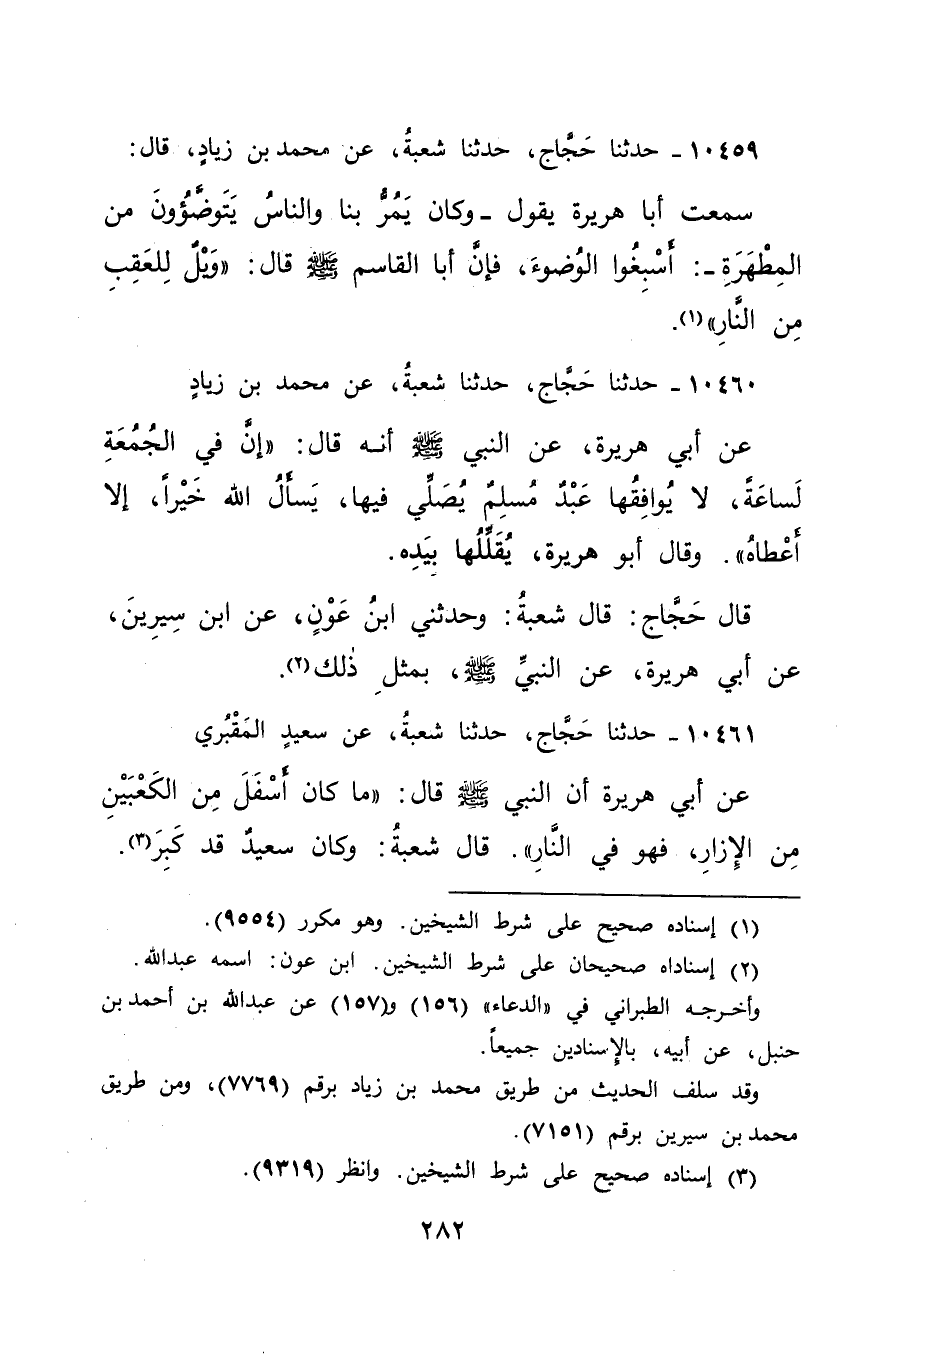 ١٠٤٥٩ ـ حدثنا حَجَّاج، حدثنا شعبةُ، عن محمد بن زيادٍ، قال:
سمعت أبا هريرة يقول ـ وكان يَمُرُّ بنا والناسُ يَتَوضَّؤُونَ من
المِطْهَرَةِ ـ: أَسْبِغُوا الوُضوءَ، فإنَّ أبا القاسم ﷺ قال: «وَيْلٌ لِلعَقِبِ
مِن النَّارِ»(١).
١٠٤٦٠ ـ حدثنا حَجَّاج، حدثنا شعبةُ، عن محمد بن زيادٍ
عن أبي هريرة، عن النبي ﷺ أنه قال: «إنَّ في الجُمُعَةِ
لَساعَةً، لا يُوافِقُها عَبْدٌ مُسلِمٌ يُصَلِّي فيها، يَسأَلُ الله خَيْراً، إلا
أَعْطاهُ». وقال أبو هريرة، يُقَلِّلُها بِيَدِه.
قال حَجَّاج: قال شعبةُ: وحدثني ابنُ عَوْنٍ، عن ابن سِيرِينَ،
عن أبي هريرة، عن النبيِّ ﷺ، بمثلِ ذٰلك(٢).
١٠٤٦١ ـ حدثنا حَجَّاج، حدثنا شعبةُ، عن سعيدٍ المَقْبُري
عن أبي هريرة أن النبي ﷺ قال: «ما كان أَسْفَلَ مِن الكَعْبَيْنِ
مِن الإِزارِ، فهو في النَّارِ». قال شعبةُ: وكان سعيدٌ قد كَبِرَ(٣).
(١) إسناده صحيح على شرط الشيخين. وهو مكرر (٩٥٥٤).
(٢) إسناداه صحيحان على شرط الشيخين. ابن عون: اسمه عبدالله.
وأخرجه الطبراني في «الدعاء» (١٥٦) و(١٥٧) عن عبدالله بن أحمد بن
حنبل، عن أبيه، بالإسنادين جميعاً.
وقد سلف الحديث من طريق محمد بن زياد برقم (٧٧٦٩)، ومن طريق
محمد بن سيرين برقم (٧١٥١).
(٣) إسناده صحيح على شرط الشيخين. وانظر (٩٣١٩).
٢٨٢